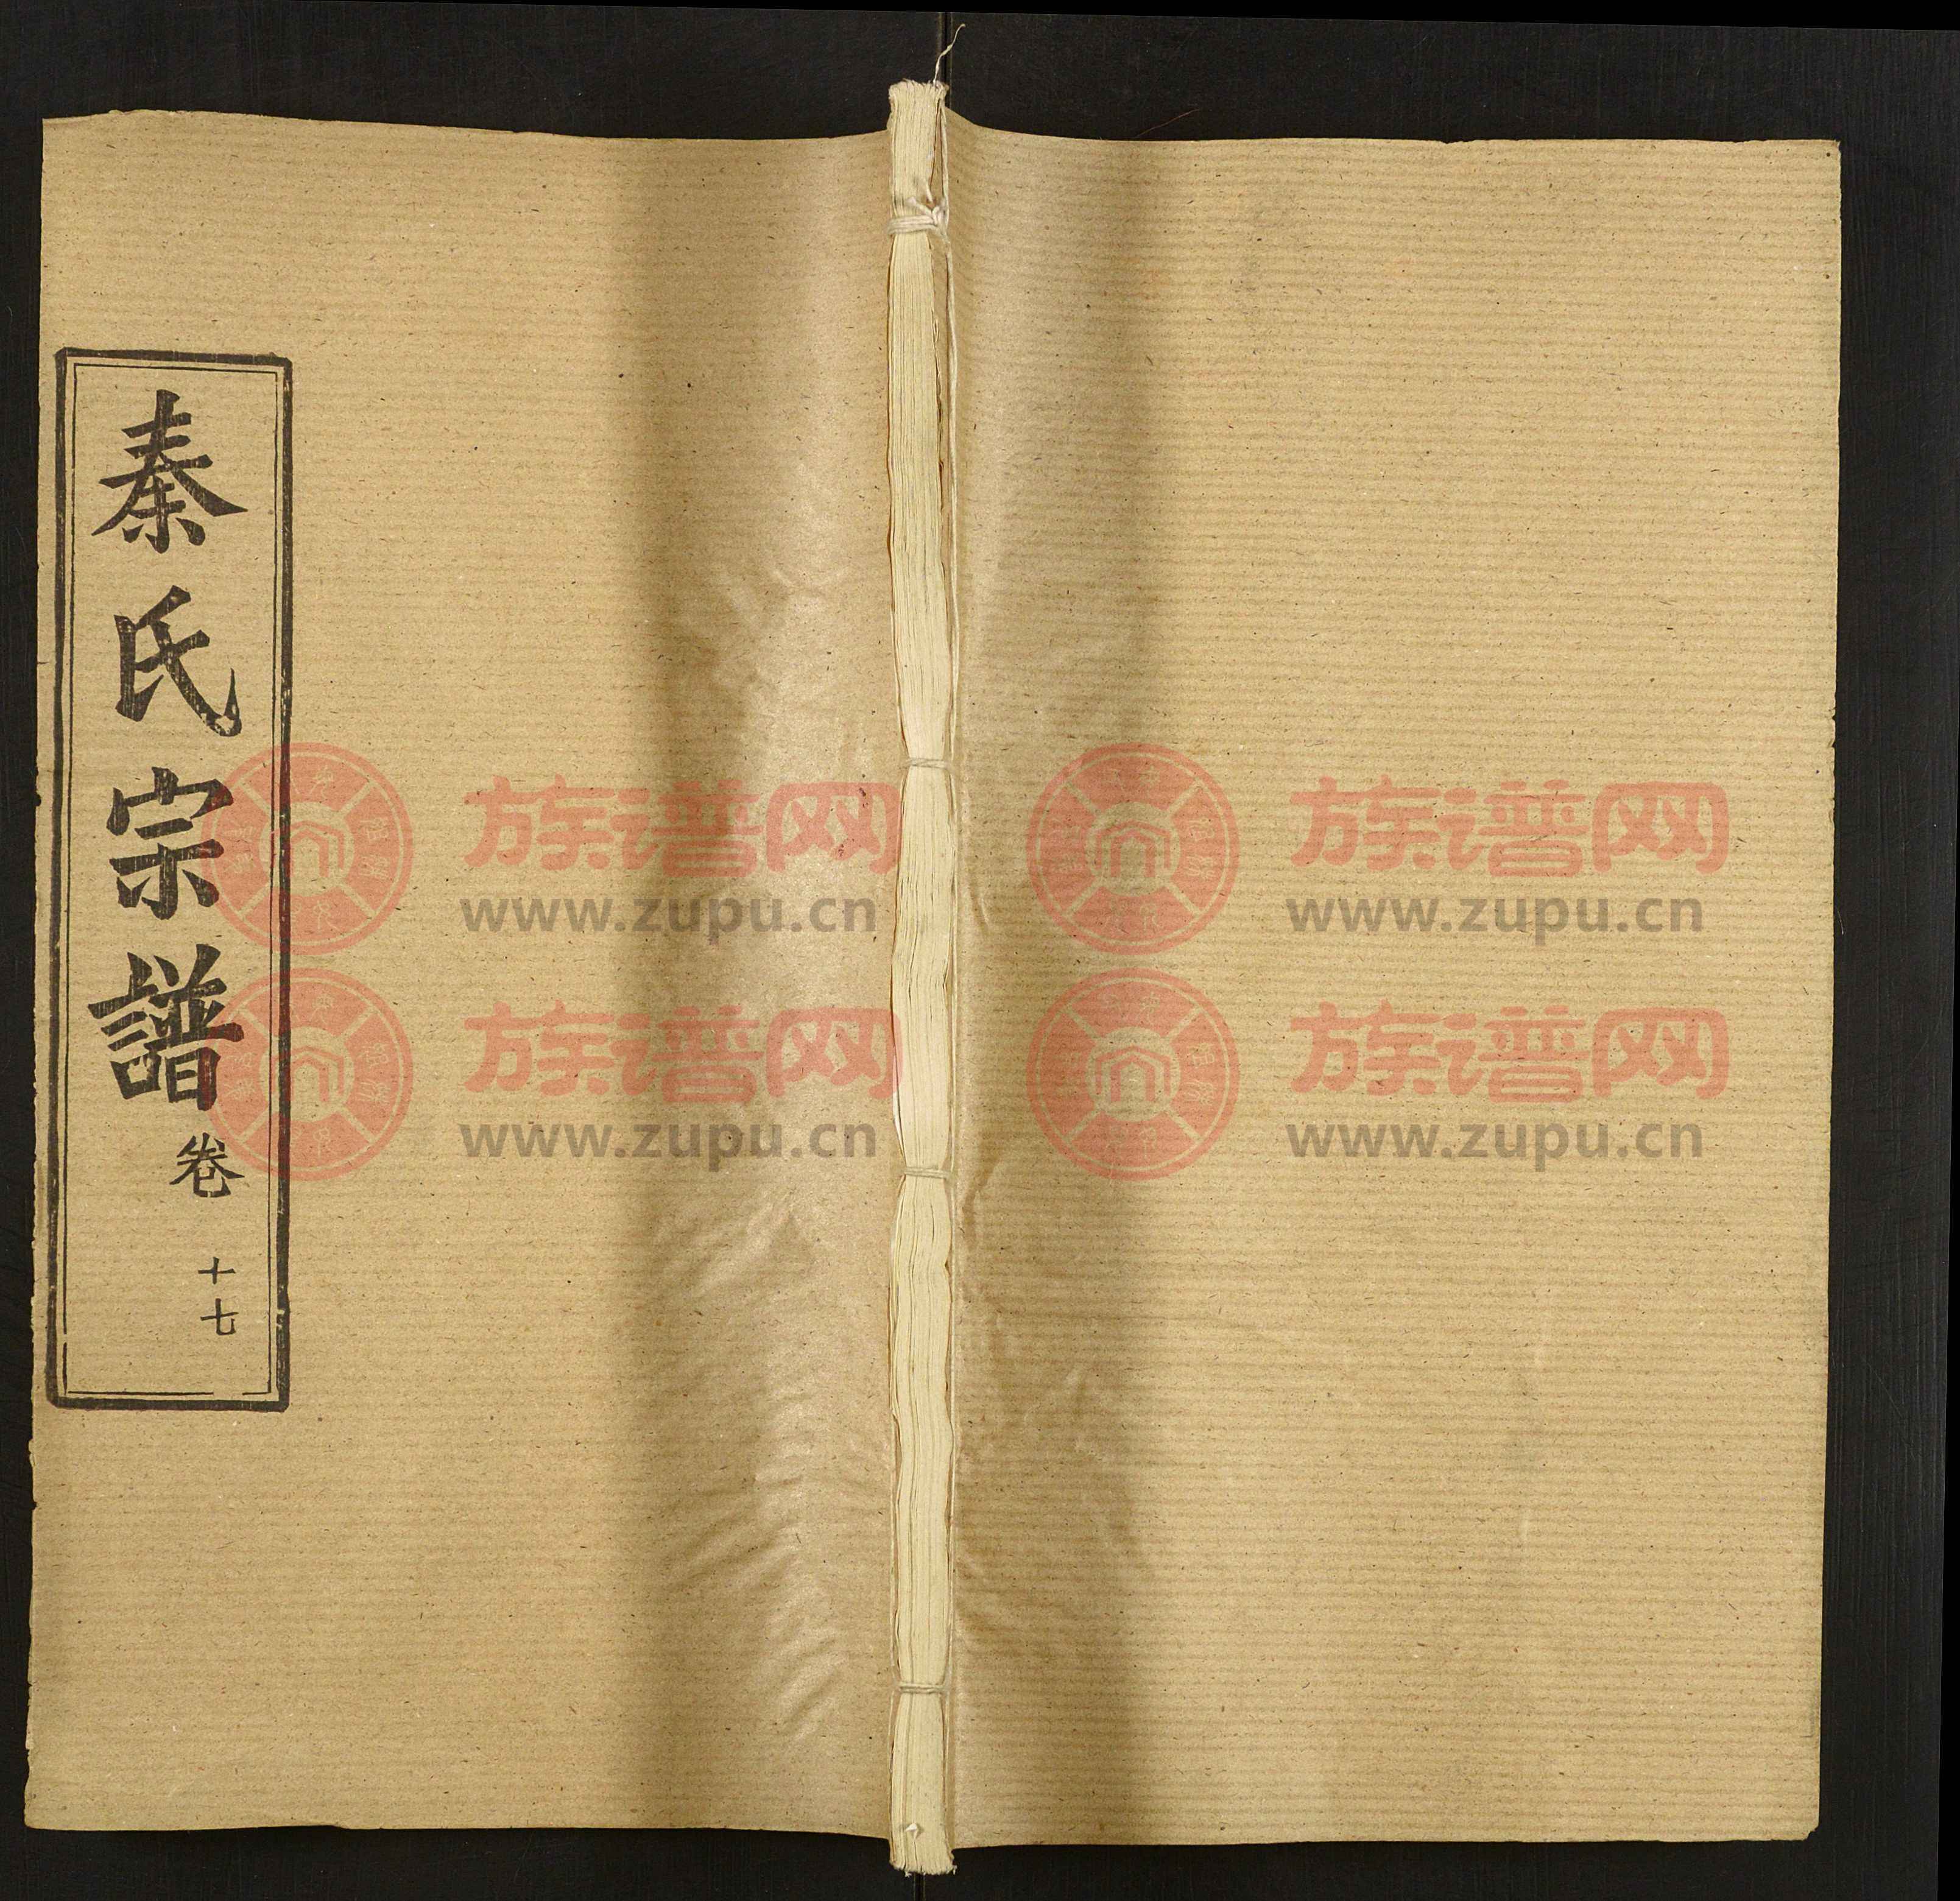 秦氏宗譜 卷十七
族谱网
www.zupu.cn
族谱网
www.zupu.cn
族谱网
www.zupu.cn
族谱网
www.zupu.cn